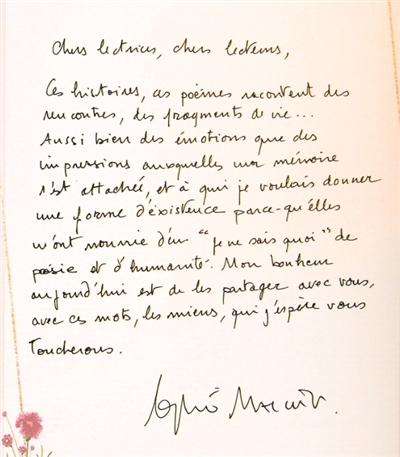 Chers lectrices, chers lecteurs,
Ces histoires, ces poèmes racontent des
rencontres, des fragments de vie...
Aussi bien des émotions que des
impressions auxquelles ma mémoire
s'est attachée, et à qui je voulais donner
une forme d'existence parce-qu'elles
m'ont nourrie d'un "je ne sais quoi" de
poésie et d'humanité. Mon bonheur
aujourd'hui est de les partager avec vous,
avec ces mots, les miens, qui j'espère vous
Toucherons.